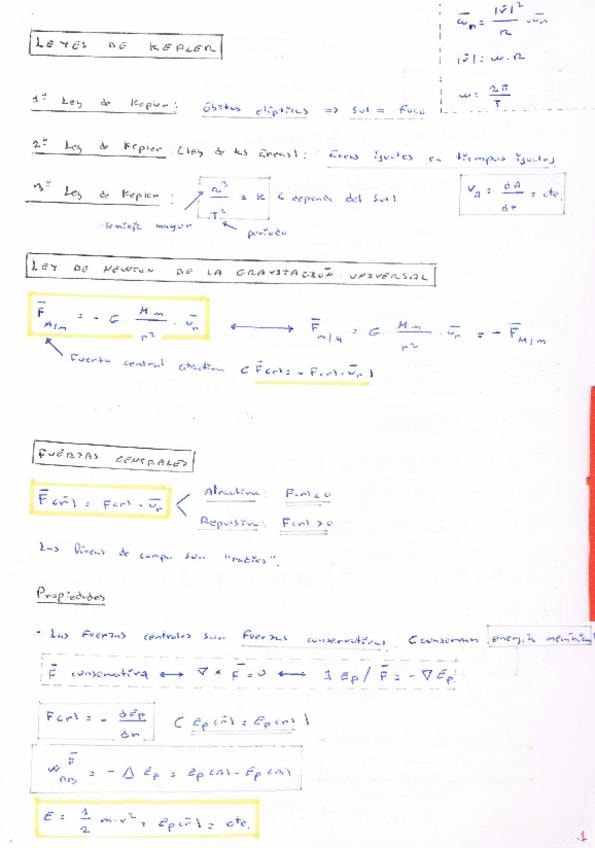 LEYES DE KEPLER
ā_n = |v̄|²/r · ū_n
|v̄| = w·r
w = 2π/T
1ª Ley de Kepler: órbitas elípticas => Sol = Foco
2ª Ley de Kepler (Ley de las áreas): áreas iguales en tiempos iguales
3ª Ley de Kepler: r³/T² = K (depende del Sol)
V_A = dA/dt = cte.
semieje mayor
periodo
LEY DE NEWTON DE LA GRAVITACIÓN UNIVERSAL
F̄_M/m = - G M·m/r² · ū_r ⟷ F̄_m/M = G M·m/r² · ū_r = - F̄_M/m
Fuerza central atractiva (F̄(r) = - F(r)·ū_r)
FUERZAS CENTRALES
F̄(r̄) = F(r)·ū_r
Atractiva: F(r) < 0
Repulsiva: F(r) > 0
Las líneas de campo son "radios".
Propiedades
· Las fuerzas centrales son fuerzas conservativas (conservan energía mecánica)
F̄ conservativa ⟷ ∇ × F̄ = 0 ⟷ ∃ Ep / F̄ = - ∇Ep.
F(r) = - dEp/dr (Ep(r̄) = Ep(r))
W_AB^F̄ = - Δ Ep = Ep(A) - Ep(B)
E = 1/2 m·v² + Ep(r̄) = cte.
1